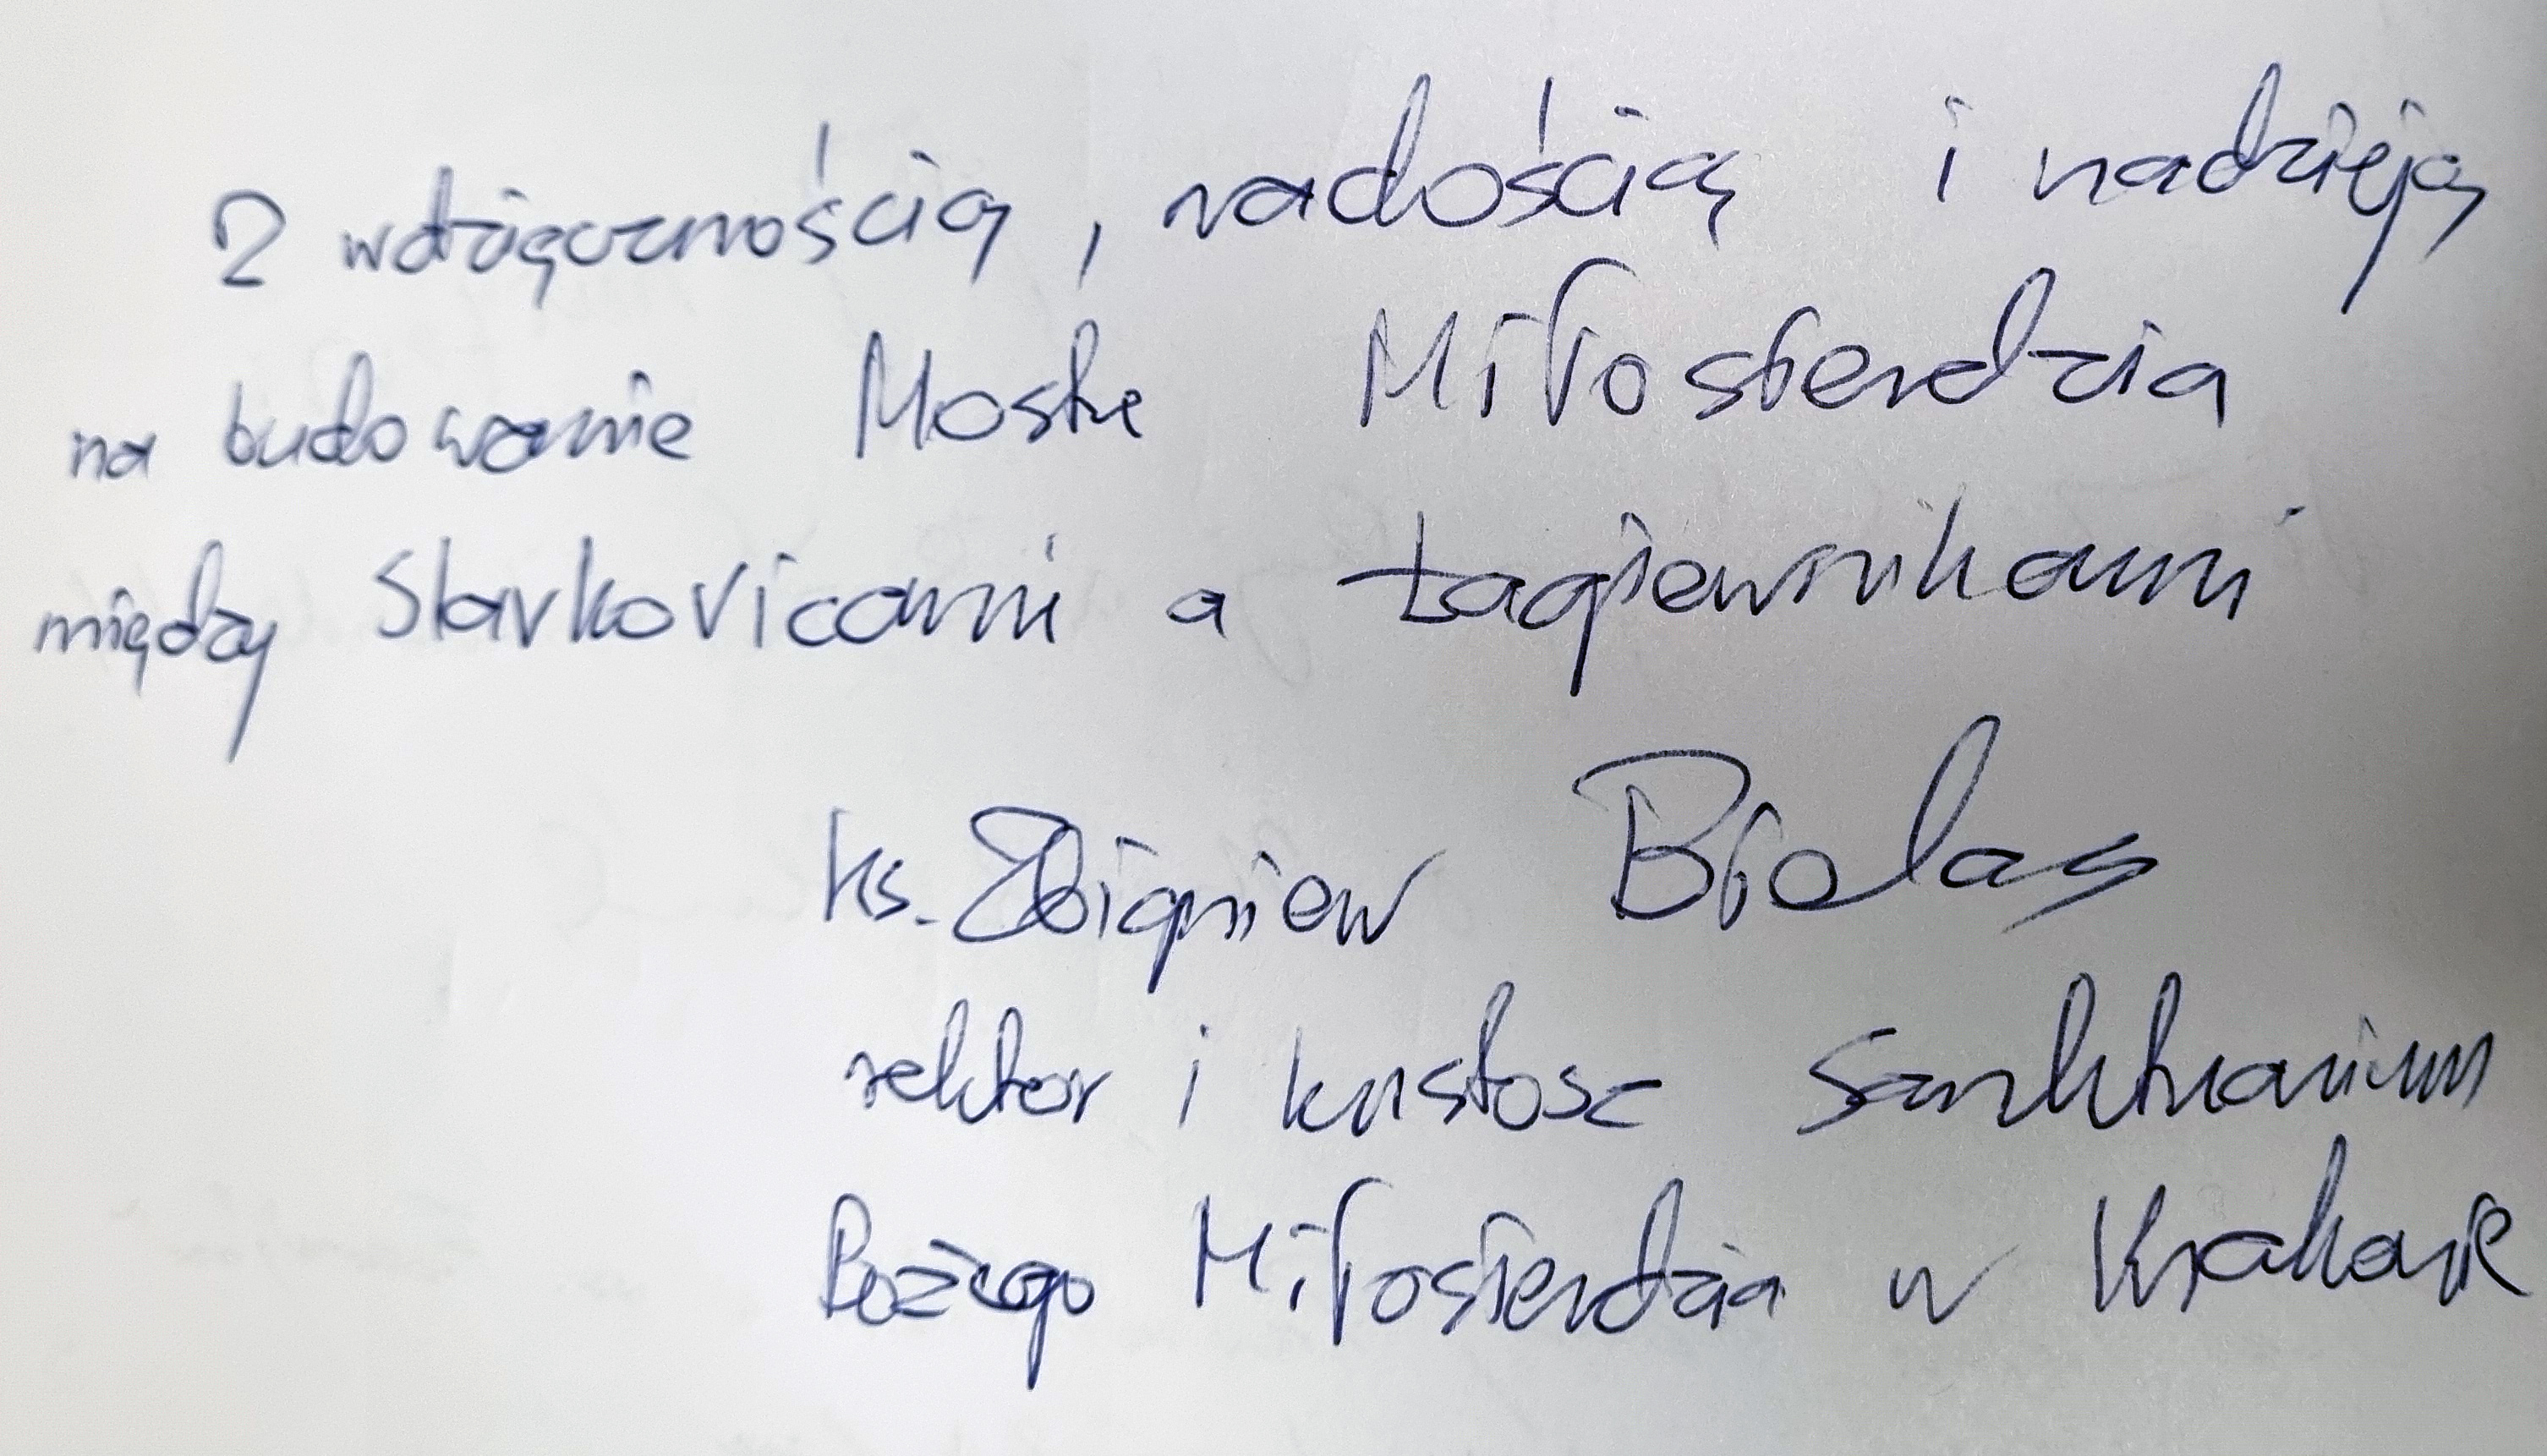 Z wdzięcznością, radością i nadzieją
na budowanie Mostu Miłosierdzia
między Slavkovicami a Łagiewnikami
ks. Zbigniew Bielas
rektor i kustosz Sanktuarium
Bożego Miłosierdzia w Krakowie